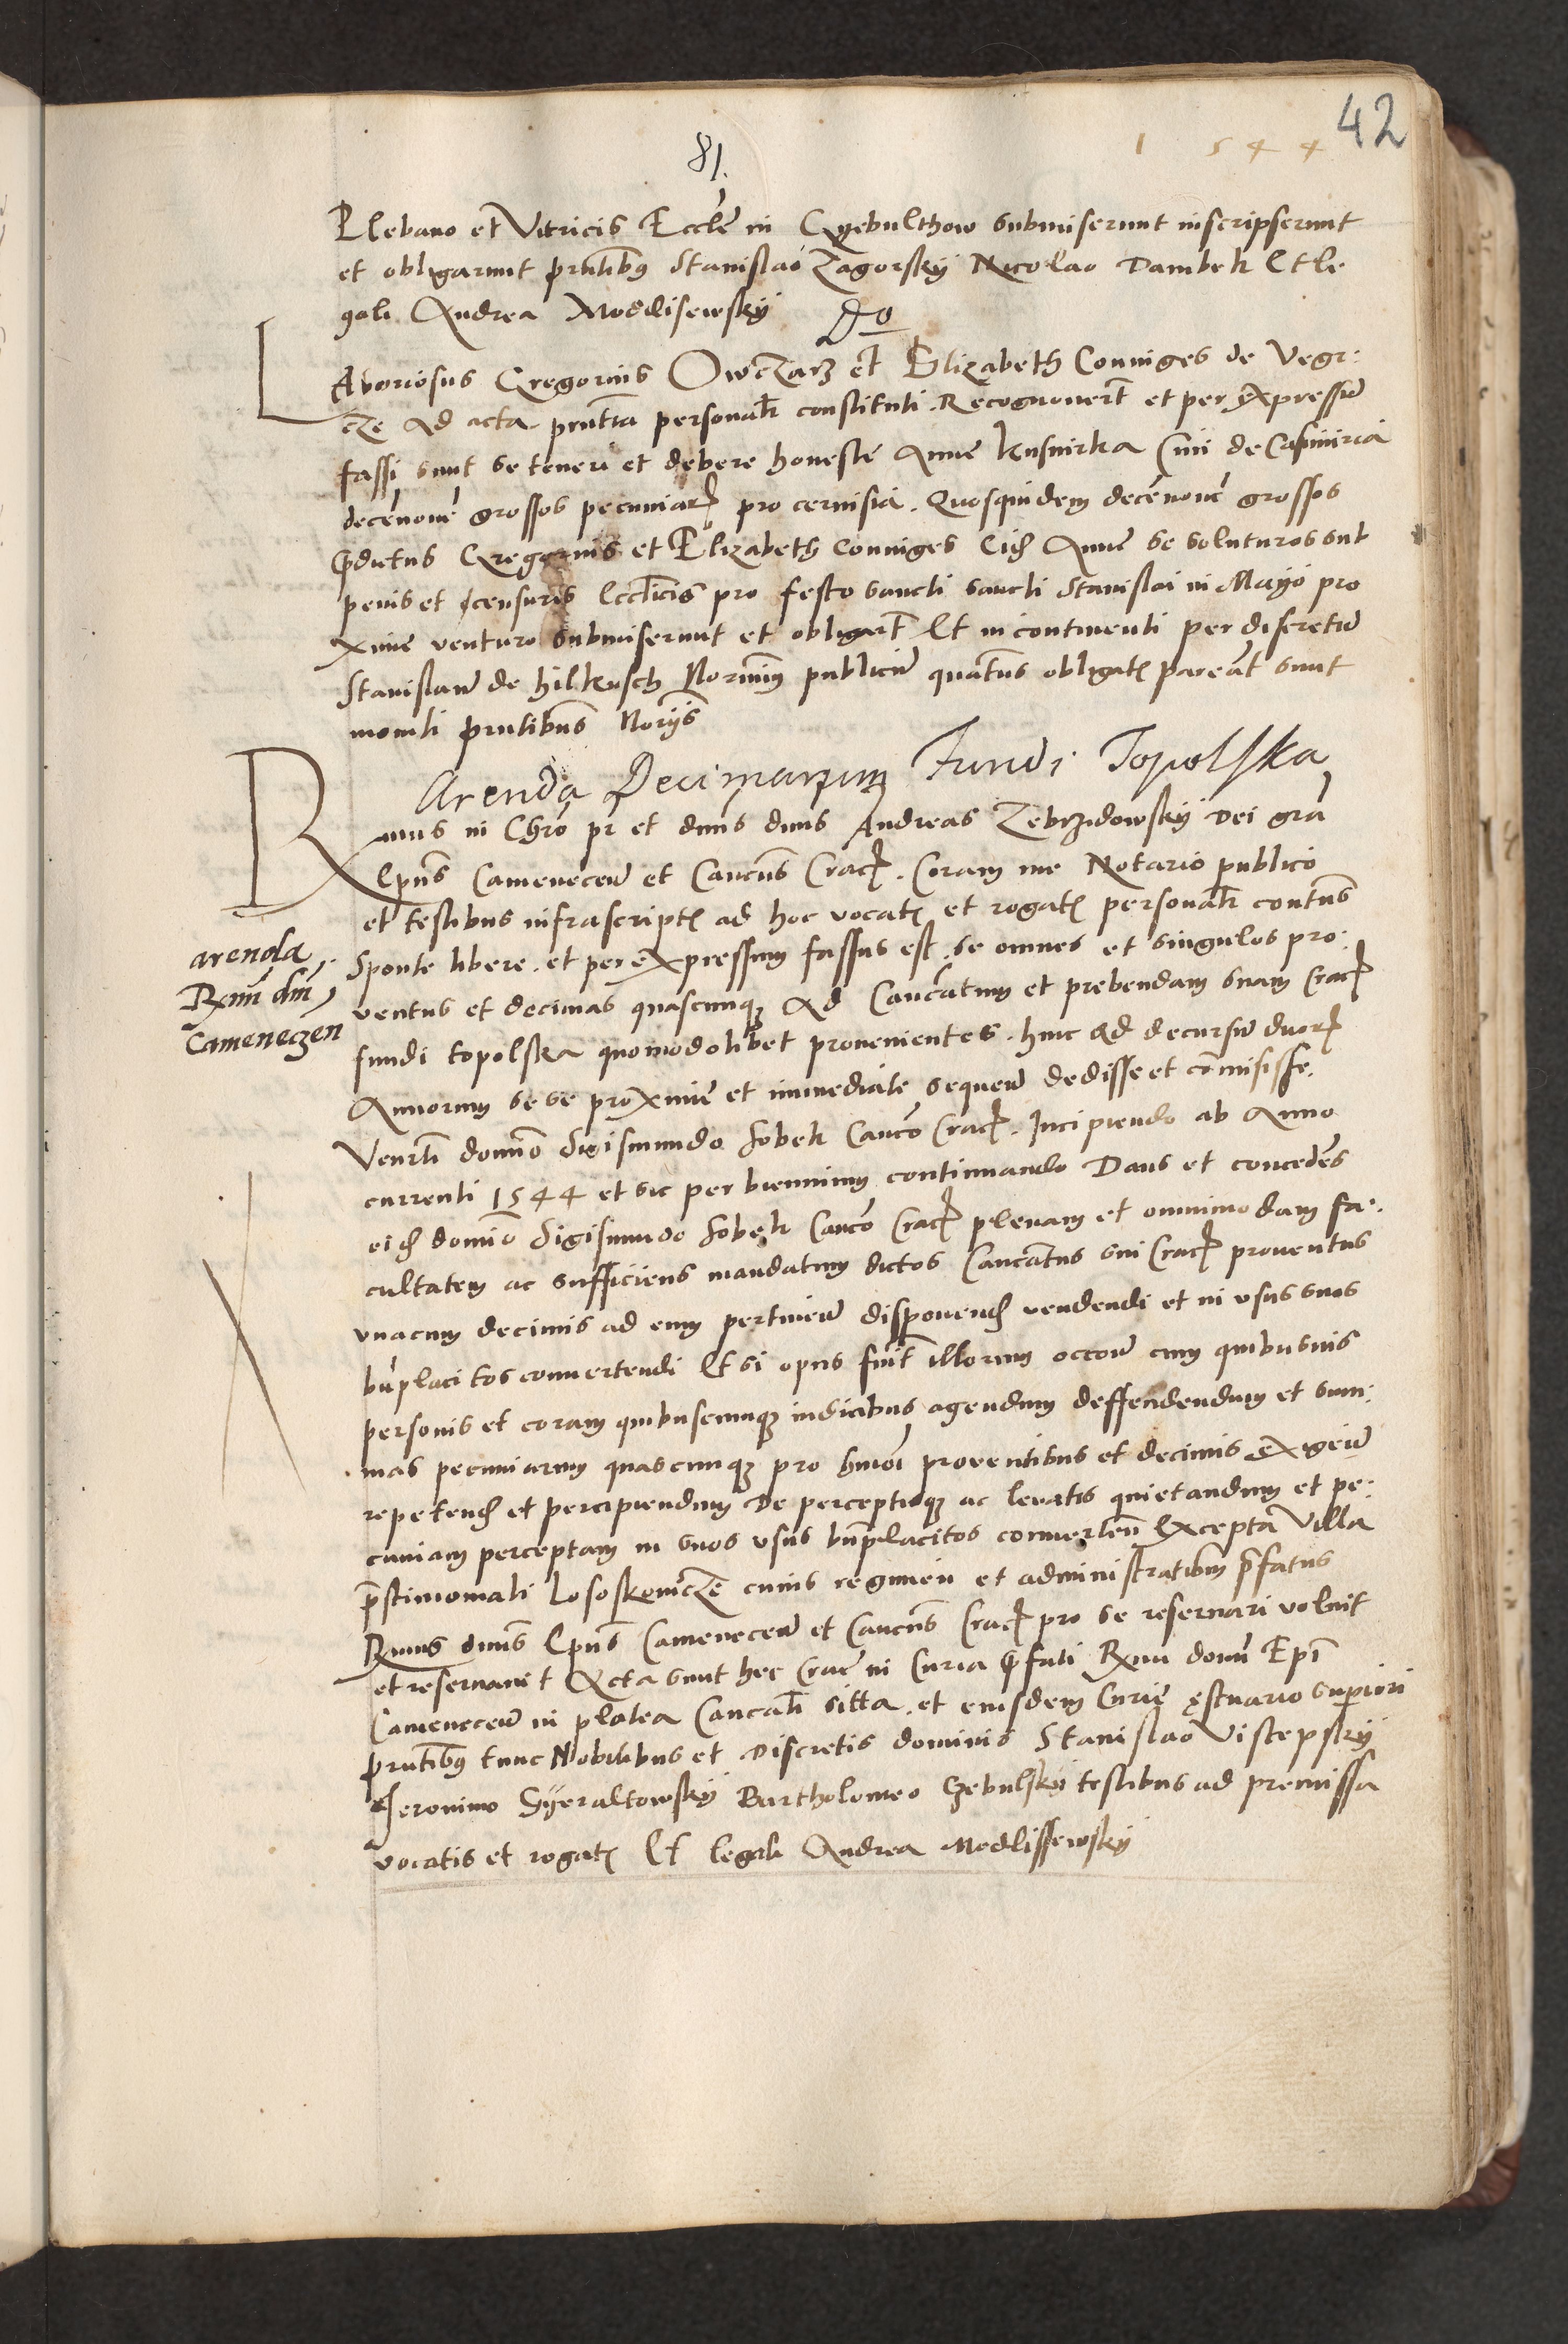 42
1544
81.
Plebano et Vitricis Eccle in Gyebulthow submiserunt inscripserunt
et obligarunt pntibus Stanislao Zagorsky Nicolao Dambek Et le
gali Andrea Modlisewsky
Laboriosus Gregorius Owczarz et Elizabeth Coniuges de Vegr:
cze Ad acta pntia personalr constituti. Recognovert et per expressu
fassi sunt se teneri et debere honeste Anne kusnirka de Casimiria
decenove grossos pecuniar pro cervisia. Quosquidem decenove grossos
pdictus Gregorius et Elizabeth Coniuges Eid Anne se soluturos sub
penis et censuris Ecclicis pro festo sancti sancti Stanislai in Mayo pro
xime venturo submiserunt et obligart Et incontinenti per discretu
Stanislau de hilkusch Norium publicu quatus obligat pareat sunt
moniti pntibus Noriis
Arenda Decimarum Fundi Topolska
Rmus in Chro pr et dnus dnus Andreas Zebrzidowsky Dei gra
Epus Camenecen et Cancus Crac. Coram me Notario publico
et testibus infrascript ad hoc vocat et rogat personalr contus
Sponte libere. et per expressum fassus est se omnes et singulos pro:
ventus et decimas quascunq Ad Cancatum et prebendam suam Crac
fundi topolska quomodolibet provenientes. hinc ad decursu duor
Annorum se se proxime et immediate sequen dedisse et comisisse.
Venrli domino Sigismundo Sobek Canco Crac. Incipiendo ab Anno
currenti 1544 et sic per biennium continuando Dans et concedes
eid domino Sigismundo Sobek Canco Crac plenam et omnimodam fa:
cultatem ac sufficiens mandatum dictos Cancatus sui Crac proventus
unacum decimis ad eum pertinen disponend vendendi et in usus suos
bnplacitos convertendi Et si opus fuit illorum occoe cum quibusvis
personis et coram quibuscumq iudicibus agendum deffendendum et sum:
mas pecuniarum quascunq pro hmoi proventibus et decimis exigen
repetend et percipiendum De perceptisq ac levatis quietandum et pe:
cuniam perceptam in suos usus bnplacitos converten Excepta villa
pstimoniali Lososkowicze cuius regimen et administratiom pfatus
Rmus dnus Epus Camenecen et Cancus Crac pro se reservari voluit
et reservavit Acta sunt hec Crac in Curia pfati Rmi domi Epi
Camenecen in platea Cancali sita. et eiusdem Curie estuario superiori
pntibus tunc Nobilibus et Discretis dominis Stanislao Vistepsky
Jeronimo Syeraltowsky Bartholomeo Gebulsky testibus ad premissa
vocatis et rogat Et legali Andrea Modlissewsky
arenda
Rmi dni
Cameneczen